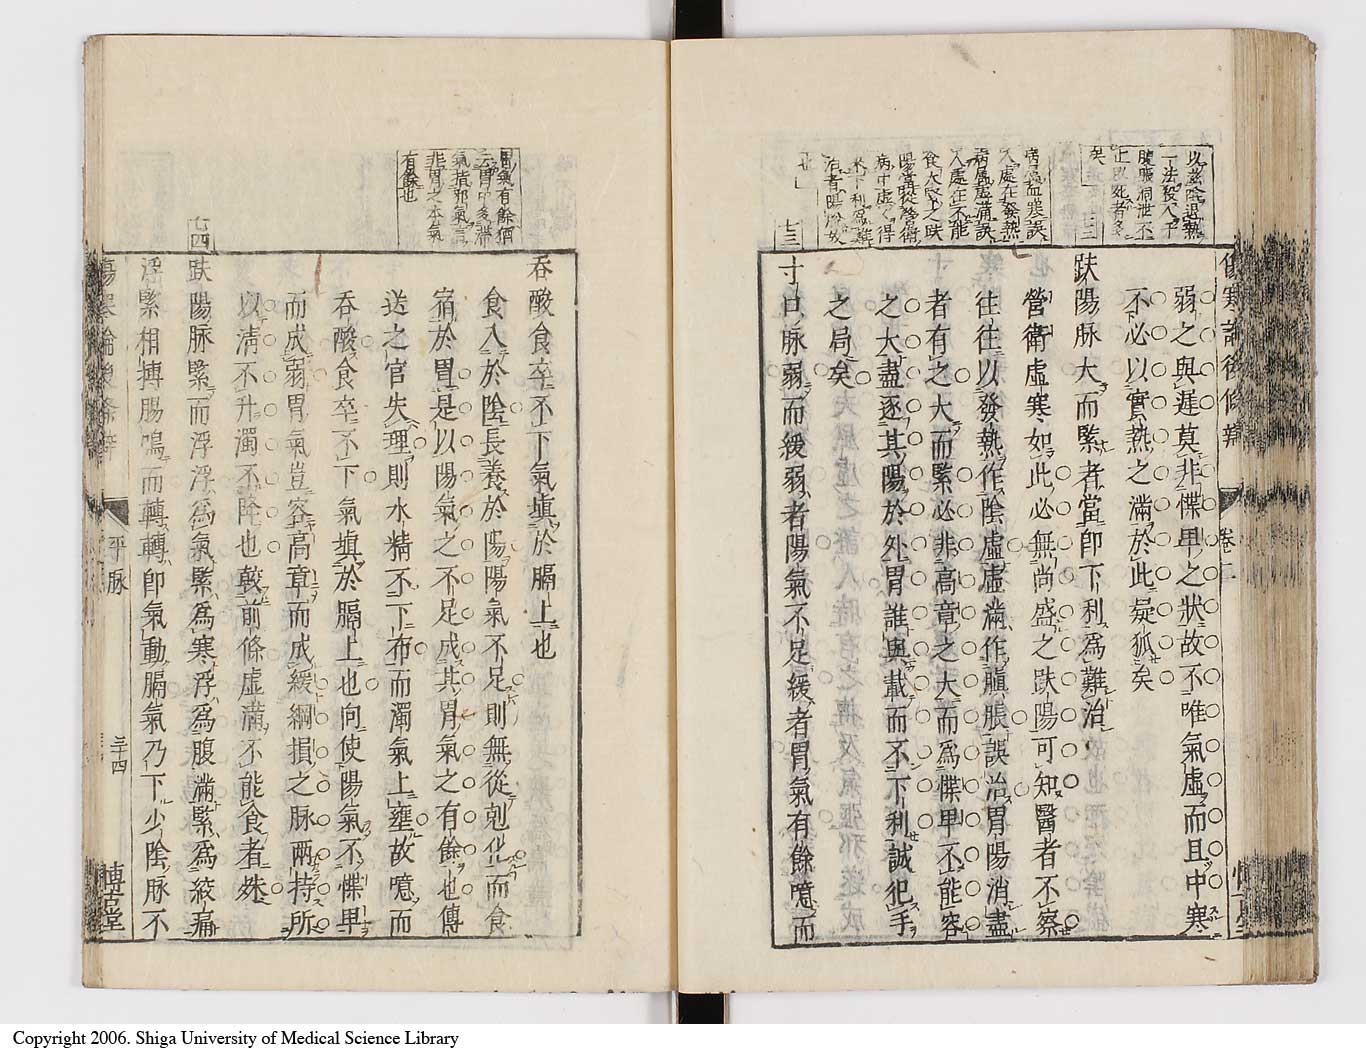 傷寒論後條辨
卷二
以茲陰退熱
一法投入乎
腹脹洞泄不
止以死者多
矣
七二
弱之與遲莫非慄卑之狀故不唯氣虛而且中寒
不必以實熱之滿於此疑狐矣
趺陽脉大而緊者當卽下利爲難治
營衛虛寒如此必無尚盛之趺陽可知醫者不察
往往以發熱作陰虛虛滿作膹脹誤治胃陽消盡
者有之大而緊必非高章之大而爲慄卑不能容
之大盡逐其陽於外胃誰與載而不下利誠犯手
之局矣
入處在發熱
病屬虛滿誤
入處在不能
食大緊之趺
治者臨
七三
寸口脉弱而緩弱者陽氣不足緩者胃氣有餘噫而
吞酸食卒不下氣填於膈上也
食入於陰長養於陽陽氣不足則無從剋化而食
宿於胃是以陽氣之不足成其胃氣之有餘也傳
送之官失理則水精不下布而濁氣上壅故噫而
吞酸食卒不下氣填於膈上也向使陽氣不慄卑
而成弱胃氣豈容高章而成緩綱損之脉兩持所
以淸不升濁不降也較前條虛滿不能食者殊
胃氣有餘猶
云胃中多滯
氣指邪氣言
非胃之本氣
有餘也
七四
趺陽脉緊而浮浮爲氣緊爲寒浮爲腹滿緊爲絞痛
浮緊相搏腸鳴而轉轉卽氣動膈氣乃下少陰脉不
傷寒論後條辨
平脉
三十四
博古堂
Copyright 2006. Shiga University of Medical Science Library